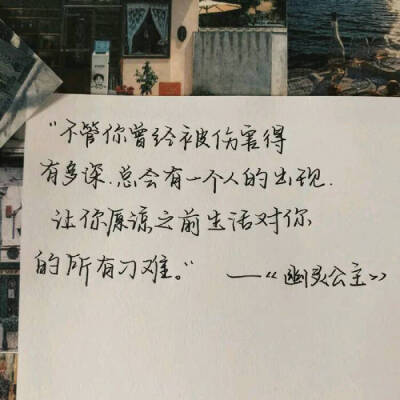 “不管你曾经被伤害得
有多深.总会有一个人的出现.
让你原谅之前生活对你
的所有刁难。” ——《幽灵公主》